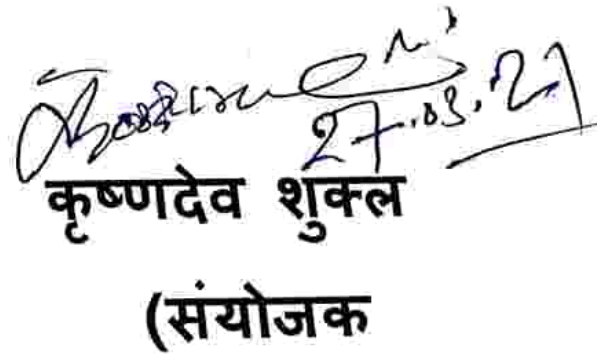 27.03.21
कृष्णदेव शुक्ल
(संयोजक